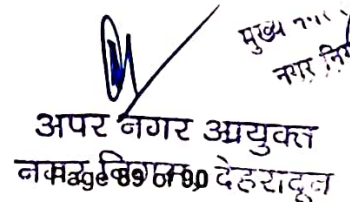 मुख्य नगर
नगर नि
अपर नगर आयुक्त
नगर निगम, देहरादून
Page 89 of 90